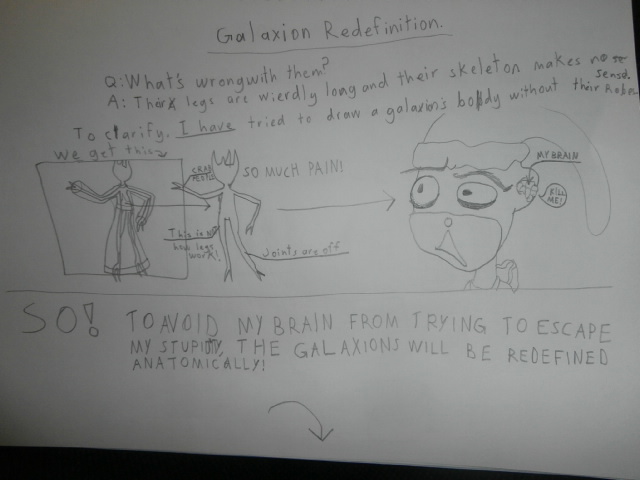 Galaxion Redefinition.
Q: What's wrong with them?
A: Their legs are wierdly long and their skeleton makes no
sense.
To clarify, I have tried to draw a galaxion's body without their Robe
We get this
SO MUCH PAIN!
MY BRAIN
KILL
ME!
This is not
how legs
work!
Joints are off
SO! TO AVOID MY BRAIN FROM TRYING TO ESCAPE
MY STUPIDITY, THE GALAXIONS WILL BE REDEFINED
ANATOMICALLY!